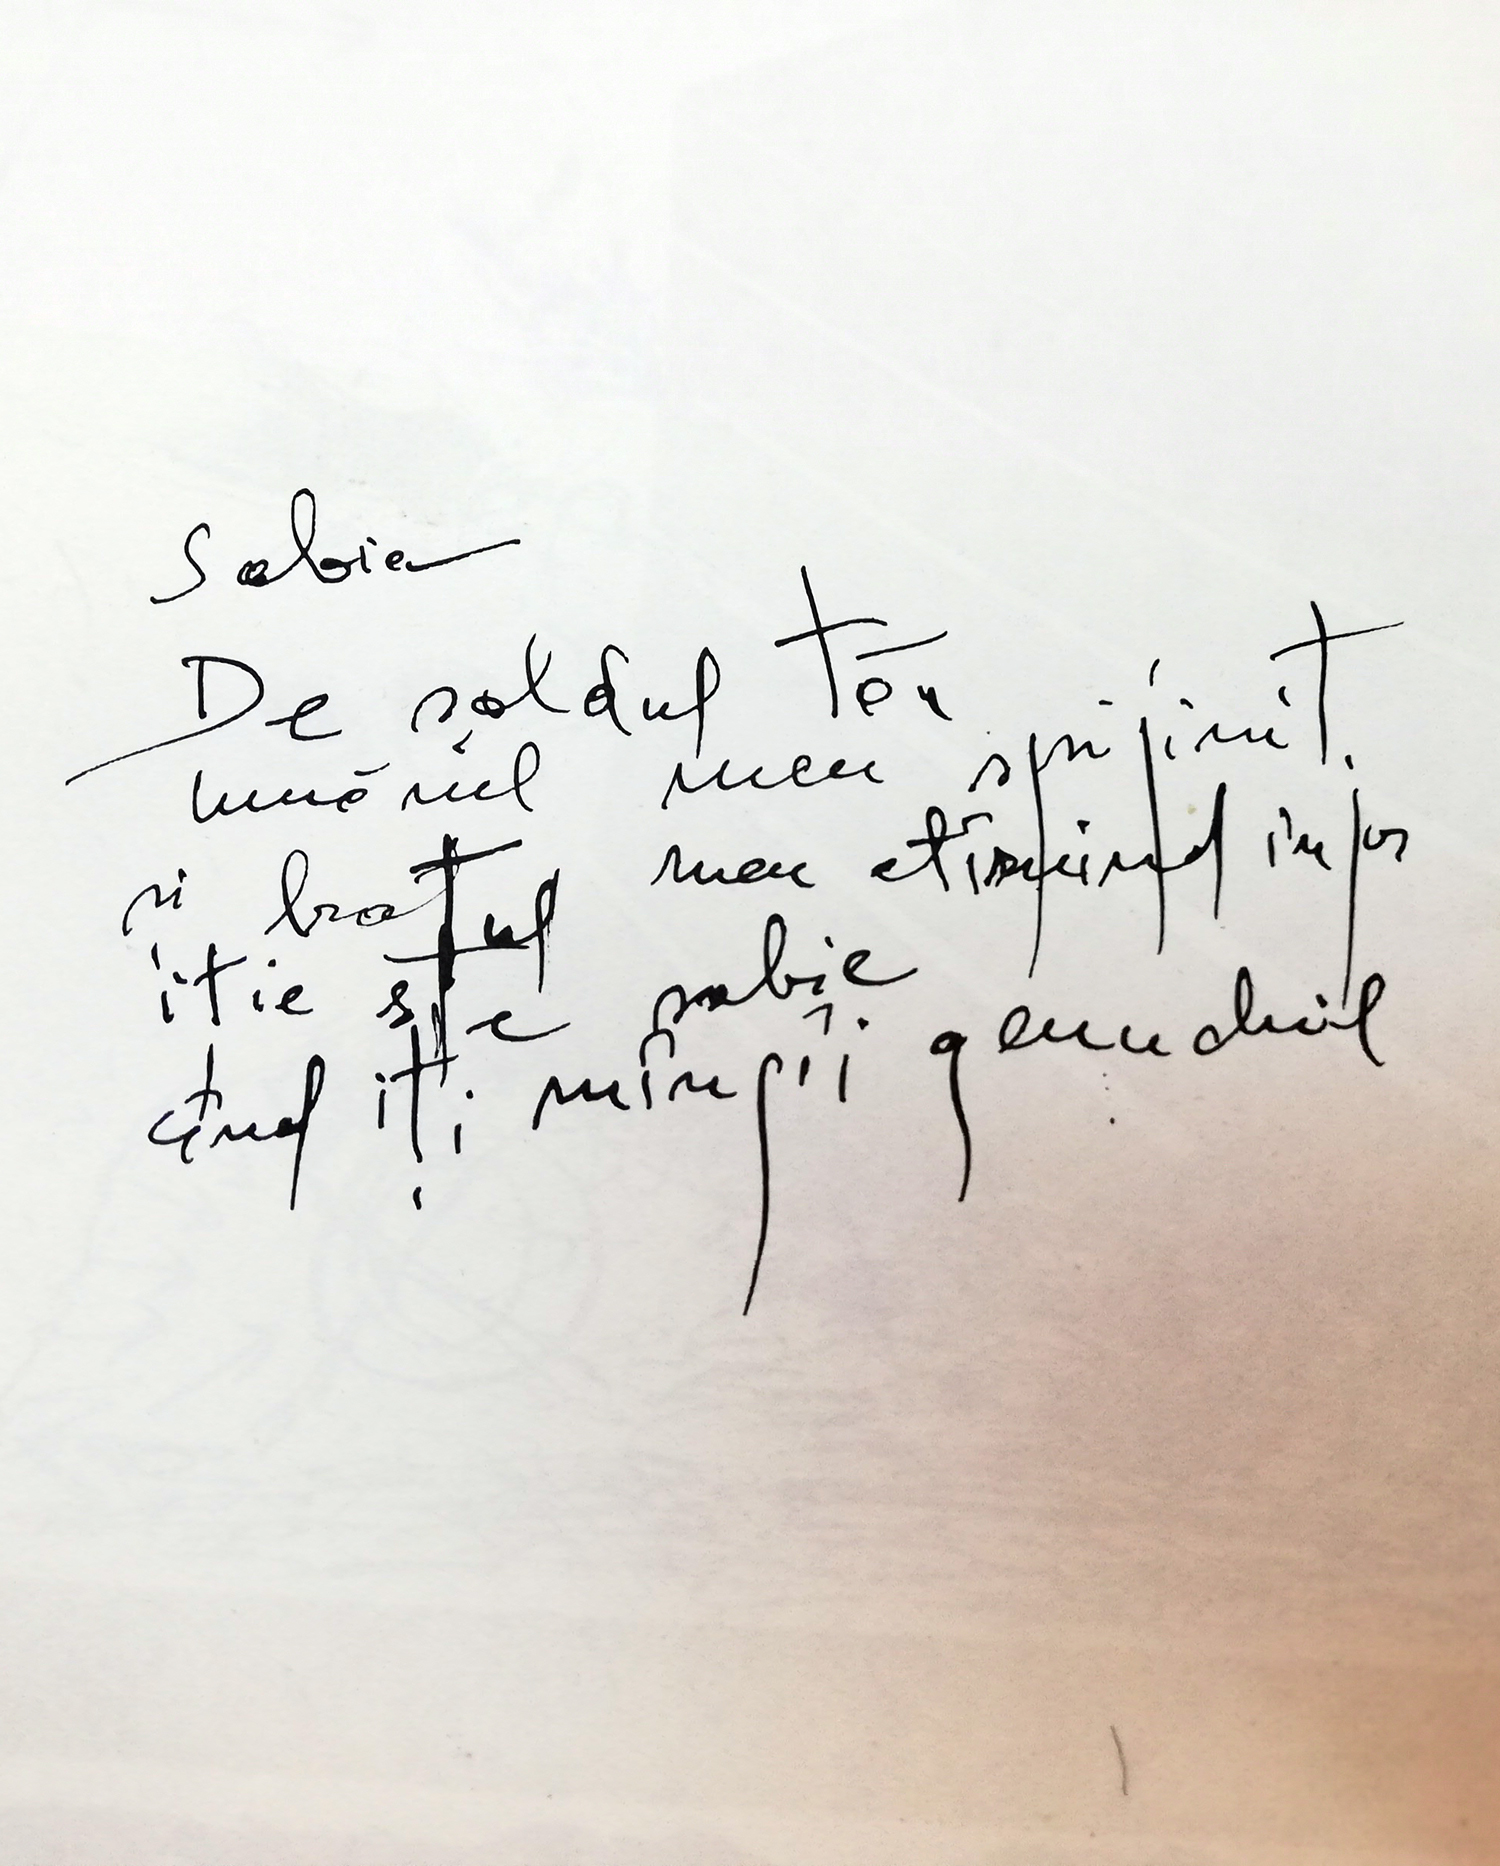 Sabia
De șoldul tău
umărul meu sprijinit.
și brațul meu atîrnînd în jos
îți este sabie
cînd îți mîngîi genunchiul